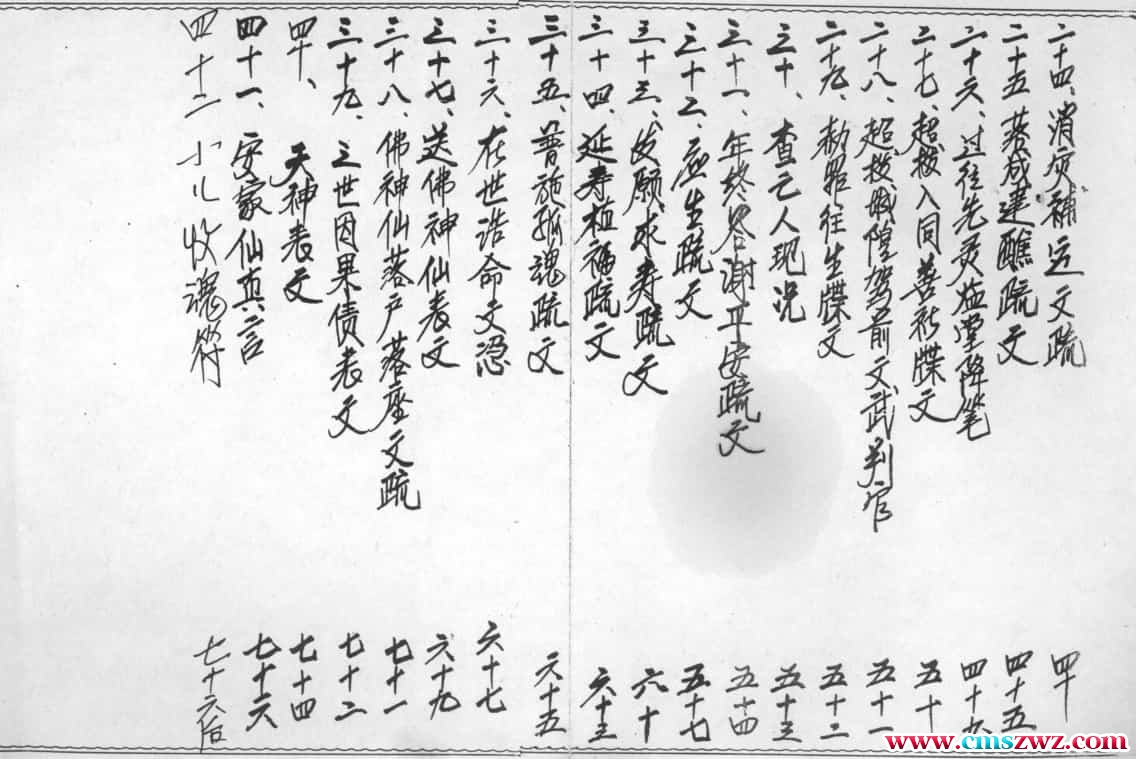 二十四、消灾补运文疏 四十
二十五 落成建醮疏文 四十五
二十六、过往先灵临堂降笔 四十九
二十七、超拔入同善社牒文 五十
二十八、超拔城隍驾前文武判官 五十一
二十九、勅照往生牒文 五十二
三十、查亡人现况 五十三
三十一、年终答谢平安疏文 五十四
三十二、应生疏文 五十七
三十三、发愿求寿疏文 六十
三十四、延寿植福疏文 六十三
三十五、普施孤魂疏文 六十五
三十六、在世诰命文 六十七
三十七、送佛神仙表文 六十九
三十八、佛神仙落户落座文疏 七十一
三十九、三世因果债表文 七十二
四十、天神表文 七十四
四十一、安家仙真言 七十六
四十二 小儿收魂符 七十六后
www.cmszwz.com